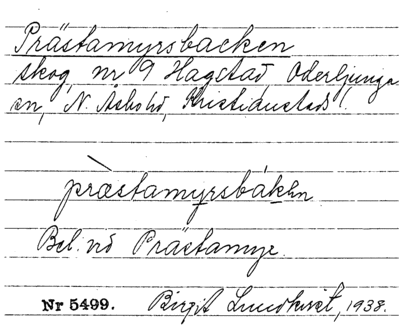 Prästamyrsbacken
skog, nr 9 Hagstad, Oderljunga
sn, N. Åsbohd, Kristianstads l.
præstamyrsbákən
Bel. vid Prästamyr.
Nr 5499. Birgit Lundkvist, 1938.